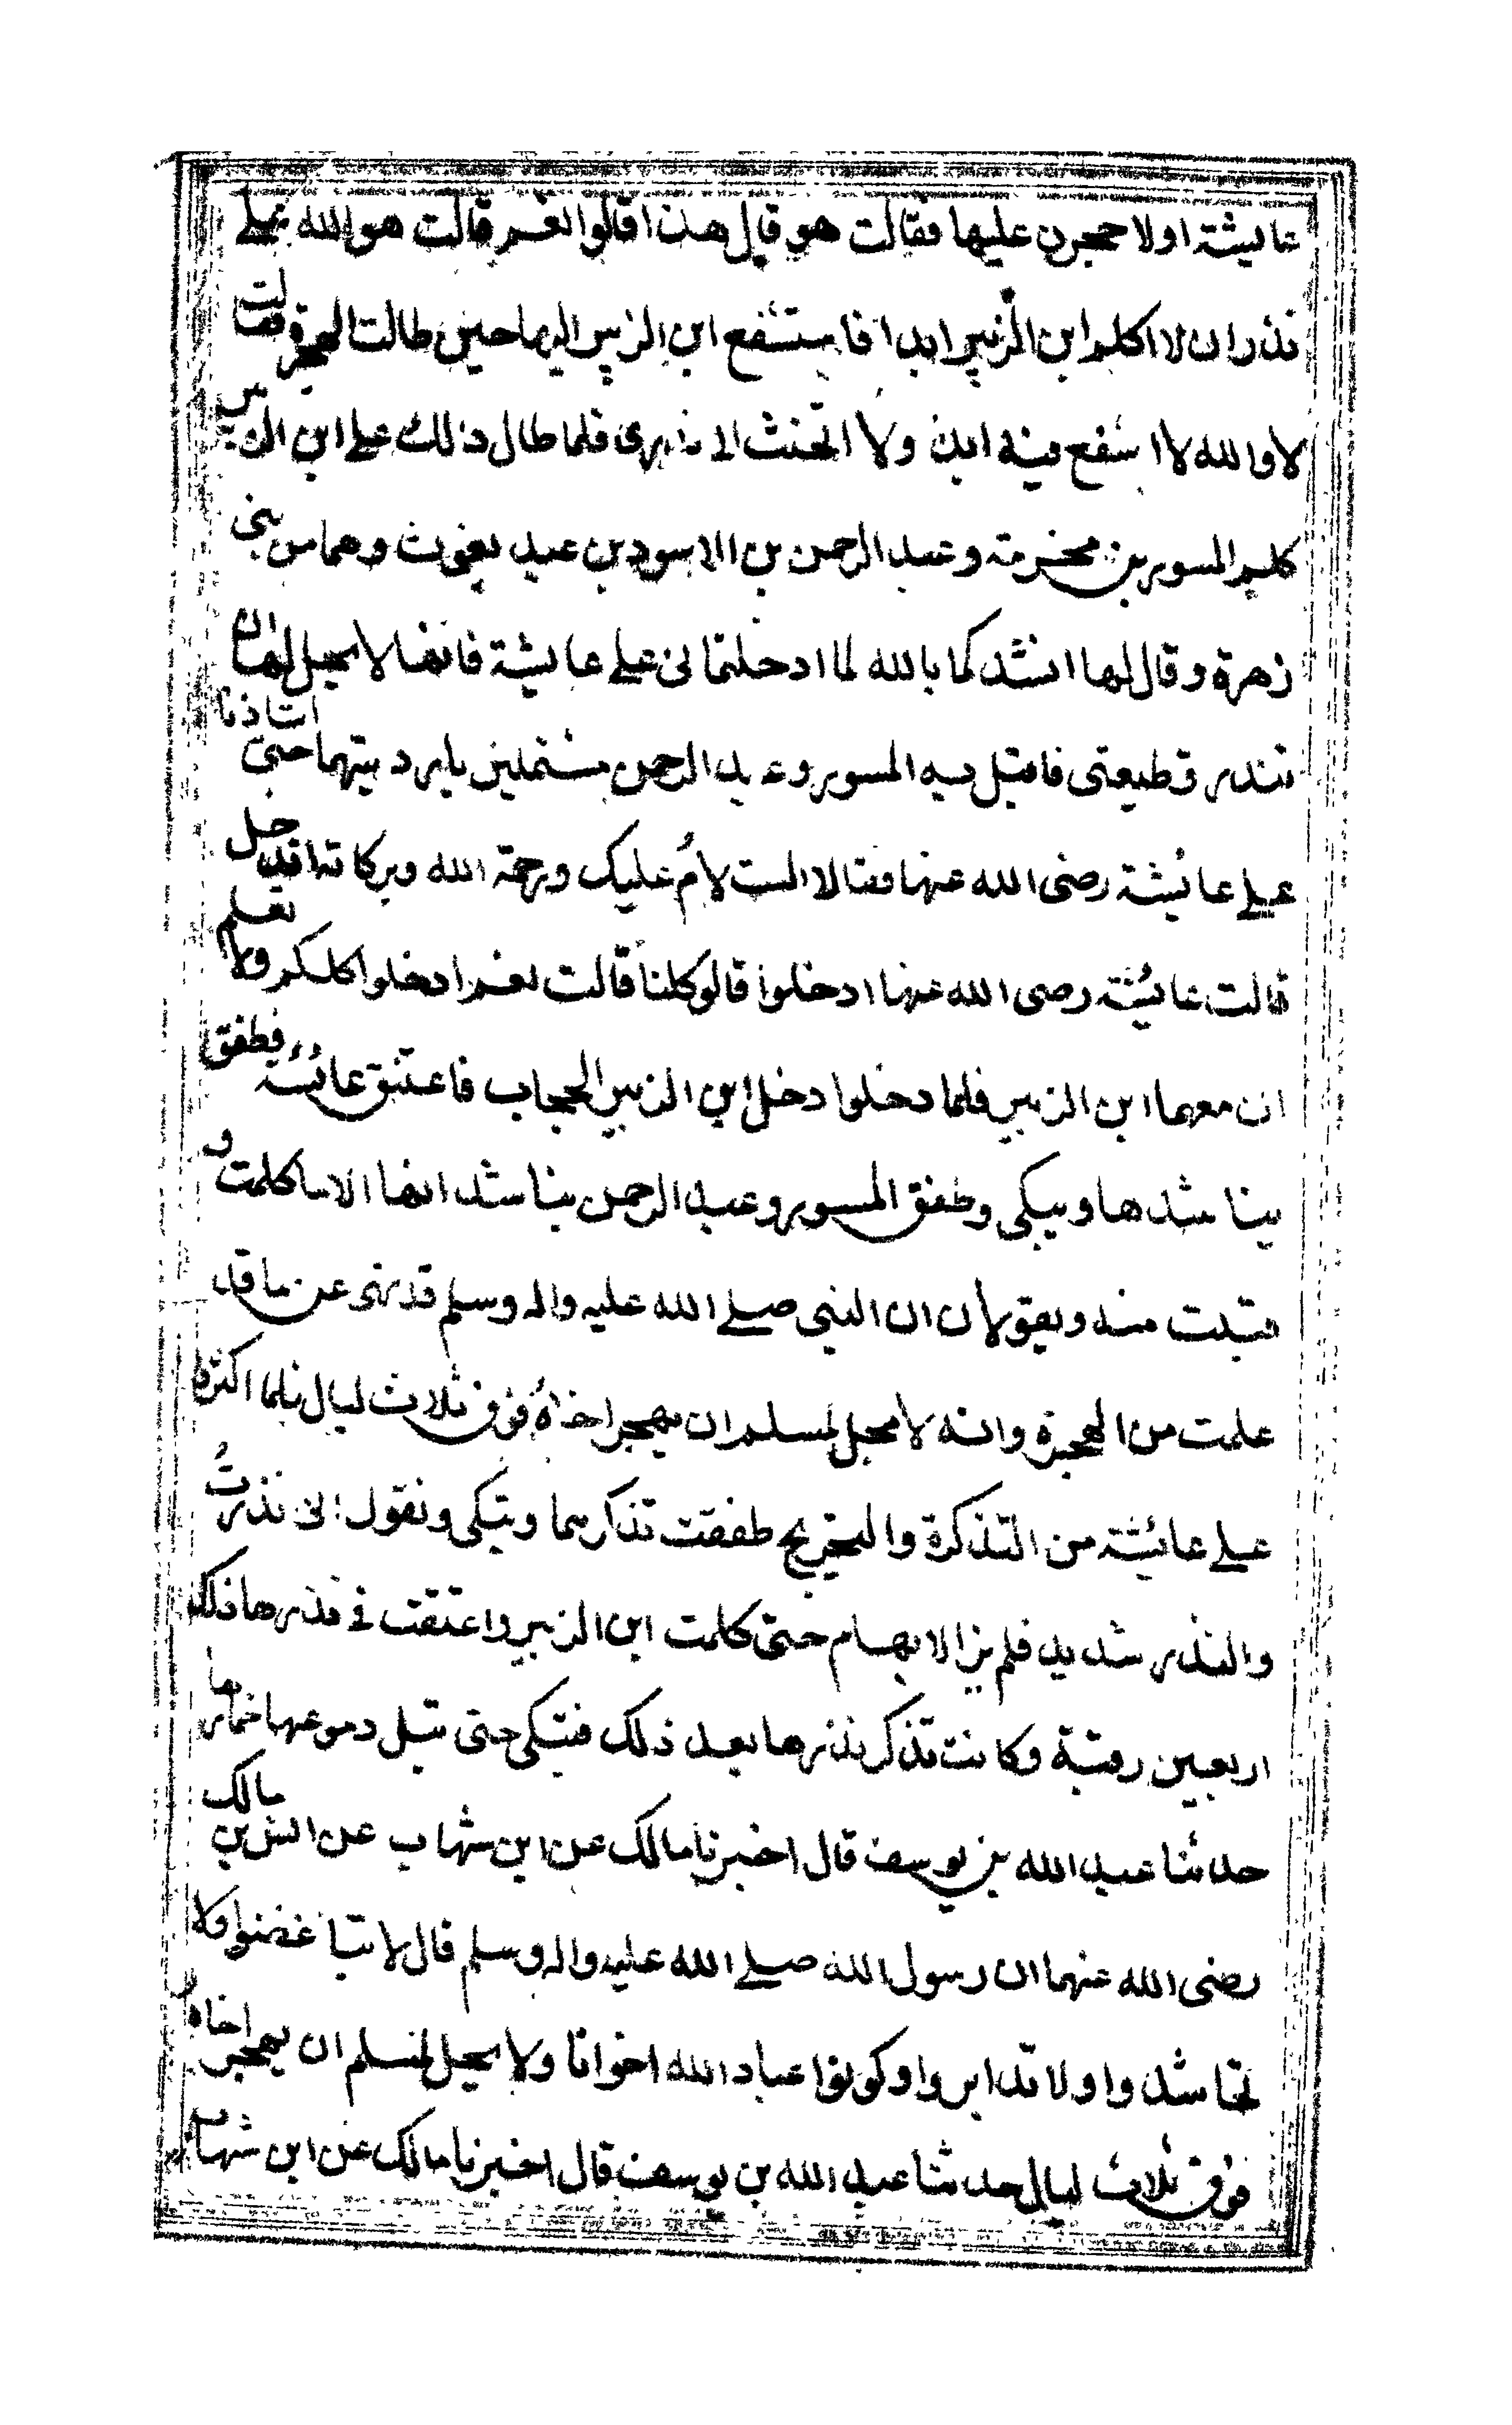 عايشة اولا حجرن عليها فقالت هو قال هذا قالوا نعم قالت هو الله علي
نذر ان لا اكلم ابن الزبير ابدا فاستشفع ابن الزبير اليها حين طالت الهجرة فقالت
لا والله لا اشفع فيه ابدا ولا اتحنث الى نذري فلما طال ذلك على ابن الزبير
كلم المسور بن مخرمة وعبد الرحمن بن الاسود بن عبد يغوث وهما من بني
زهرة وقال لهما انشدكما بالله لما ادخلتماني علي عايشة فانها لا يحل لها ان
تنذر قطيعتى فاقبل به المسور وعبد الرحمن مشتملين بارديتهما حتى استاذنا
علي عائشة رضى الله عنها فقالا السلام عليك ورحمة الله وبركاته اندخل
قالت عائشة رضى الله عنها ادخلوا قالو كلنا قالت نعم ادخلوا كلكم ولا تعلم
ان معهما ابن الزبير فلما دخلوا دخل ابن الزبير الحجاب فاعتنق عائشة فطفق
يناشدها ويبكى وطفق المسور وعبد الرحمن يناشدانها الا ما كلمت و
قبلت منه ويقولان ان النبي صلے الله عليه واله وسلم قد نهى عن ما قد
علمت من الهجرة وانه لا يحل لمسلم ان يهجر اخاه فوق ثلاث ليال فلما اكثروا
علے عائشة من التذكرة والتحريج طفقت تذكرهما وتبكى وتقول انى نذرت
والنذر شديد فلم يزالا بهما حتى كلمت ابن الزبير واعتقت في نذرها ذلك
اربعين رقبة وكانت تذكر نذرها بعد ذلك فتبكى حتى تبل دموعها خمارها
حدثنا عبد الله بن يوسف قال اخبرنا مالك عن ابن شهاب عن انس بن مالك
رضى الله عنهما ان رسول الله صلے الله عليه واله وسلم قال لا تباغضوا ولا
تحاسدوا ولا تدابروا وكونوا عباد الله اخوانا ولا يحل لمسلم ان يهجر اخاه
فوق ثلاث ليال حدثنا عبد الله بن يوسف قال اخبرنا مالك عن ابن شهاب